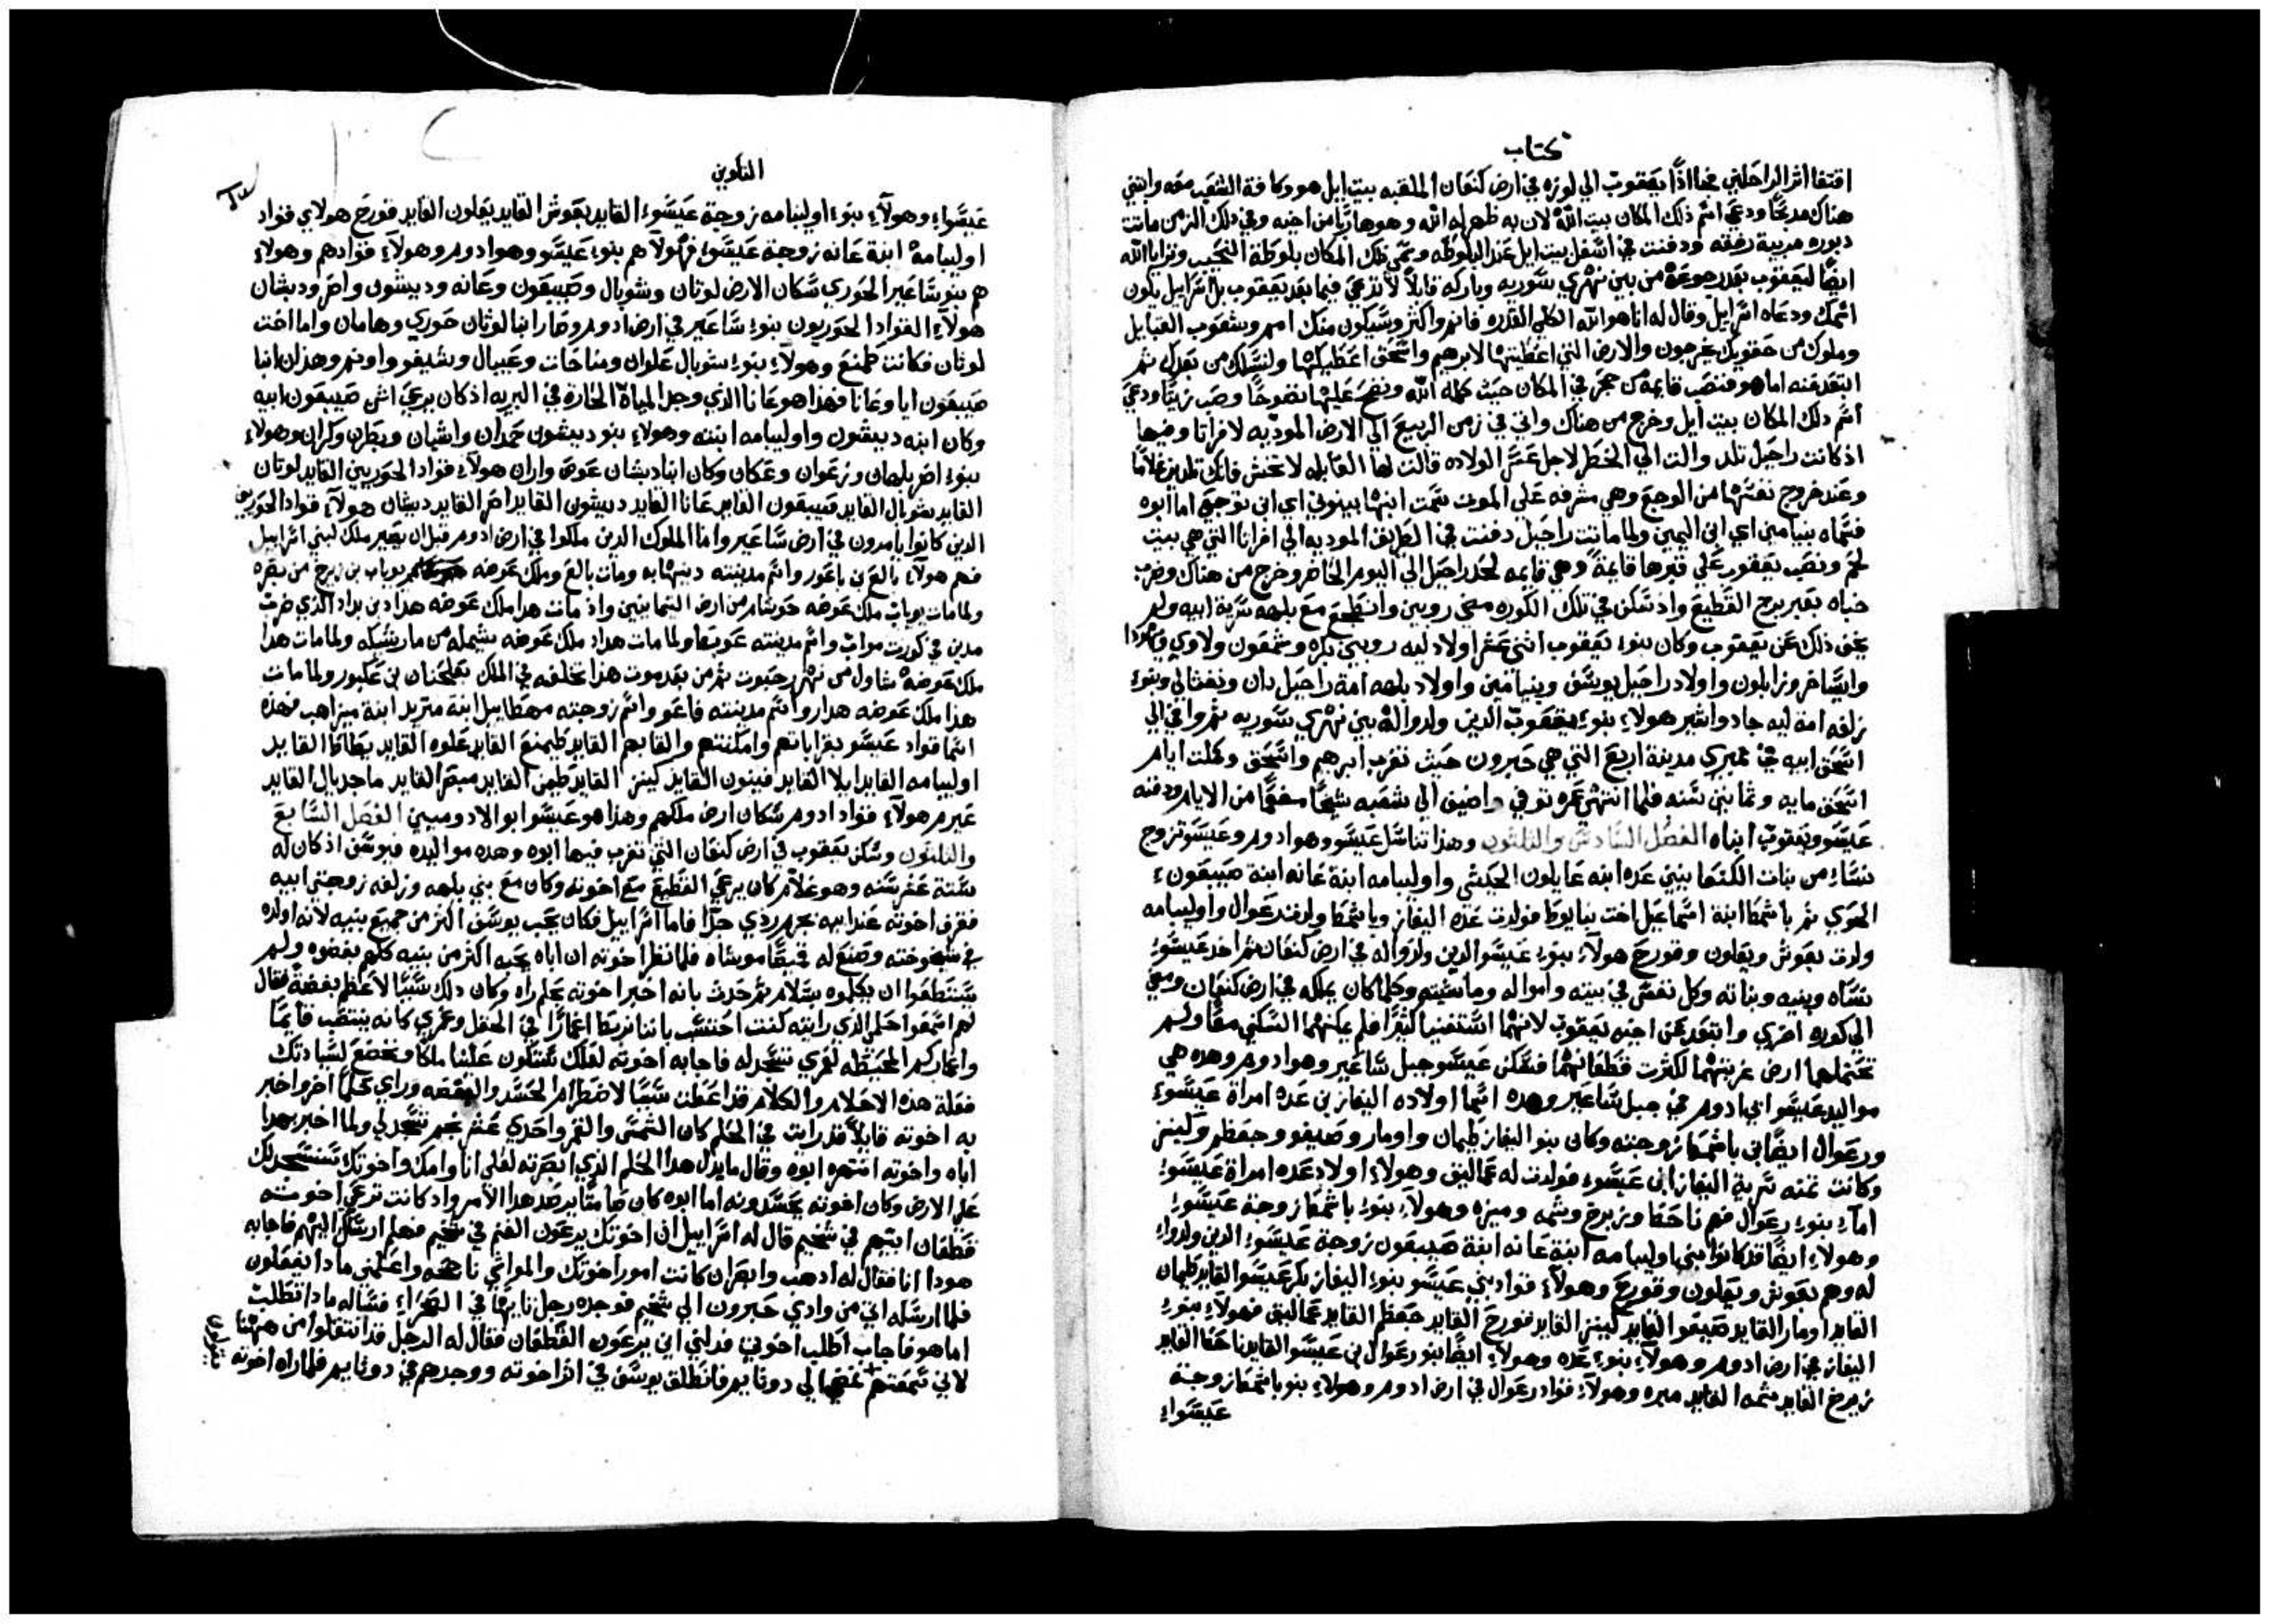 كتاب
اقتفا اثر الراحلين فجا اذًا يعقوب الي لوزه في ارض كنعان الملقبه بيت ايل هو وكافة الشعب معه وابتني
هناك مدبحًا ودعي اسم ذلك المكان بيت الله لان به ظهر له الله وهو هاربًا من اخيه وفي دلك الزمن ماتت
دبوره مربية رفقه ودفنت في اسفل بيت ايل عند البلوطه وسمي دلك المكان بلوطة النحيب وترايا الله
ايضًا ليعقوب بعد رجوعه من بين نهري سوريه وباركه قايلاً لا تدعي فيما بعد يعقوب بل اسراييل يكون
اسمك ودعاه اسراييل وقال له انا هو الله الكلي القدره فانم واكثر وسيكون منك امم وشعوب القبايل
وملوك من حقويك يخرجون والارض التي اعطيتها لابرهيم واسحق اعطيكها ولنسلك من بعدك ثم
ابتعد عنه اما هو فنصب قايمة من حجر في المكان حيث كلمه الله ونضح عليها نضوحًا وصب زيتًا ودعي
اسم دلك المكان بيت ايل وخرج من هناك واتي في زمن الربيع الي الارض الموديه لافراتا وفيها
اذ كانت راحيل تلد والت الي الخطر لاجل عسر الولاده قالت لها القابله لا تخشي فانك تلدين غلامًا
وعند خروج نفسها من الوجع وهي مشرفه علي الموت سمت ابنها بينوني اي ابن توجعي اما ابوه
فسماه بنيامين اي ابن اليمين ولما ماتت راحيل دفنت في الطريق الموديه الي افراتا التي هي بيت
لحم ونصب يعقوب علي قبرها قايمةً وهي قايمه لحد راحيل الي اليوم الحاضر وخرج من هناك وضرب
خباه بعبر برج القطيع واذ سكن في تلك الكوره مضي روبين وانضجع مع بلهه سرية ابيه ولم
يخف ذلك عن يعقوب وكان بنوء يعقوب اثني عشر اولاد ليه روبين بكره وشمعون ولاوي ويهودا
وايساخر وزابلون واولاد راحيل يوسف وبنيامين واولاد بلهه امة راحيل دان ونفتالي وبنوء
زلفه امة ليه جاد واشير هولاء بنوء يعقوب الدين ولدوا له بين نهري سوريه ثم وافي الي
اسحق ابيه في ممبري مدينة اربع التي هي حبرون حيث تغرب ابرهيم واسحق وكملت ايام
اسحق مايه وثمانين سنه فلما انتهي عمره توفي واضيف الي شعبه شيخًا مفعمًا من الايام ودفنه
عيسو ويعقوب ابناه الفصل السادس والثلثون وهذا تناسل عيسو وهو ادوم وعيسو تزوج
نساء من بنات الكنعانيين عده ابنه عايلون الحيثي واوليبامه ابنة عانه ابنة صبيعون
الحوي ثم باشمطا ابنة اسماعيل اخت نبايوط فولدت عده اليفاز وباشمطا ولدت رعوال واوليبامه
ولدت يعوش ويعلون وقورح هولاء بنوء عيسو الدين ولدوا له في ارض كنعان ثم اخد عيسوء
نساه وبنيه وبناته وكل نفس في بيته وامواله وماشيته وكلما كان يملكه في ارض كنعان ومضي
الي كوره اخري وابتعد عن اخيه يعقوب لانهما استغنيا كثيرًا فلم يمكنهما السكني معًا ولم
تحتملهما ارض غربتهما لكثرت قطعانهما فسكن عيسو جبل ساعير وهو ادوم وهده هي
مواليد عيسو ابي ادوم في جبل ساعير وهده اسما اولاده اليفاز بن عده امراة عيسوء
ورعوال ايضًا بن باشمطا زوجته وكان بنو اليفاز طيمان واومار وصيفو وجعظم وكينز
وكانت تمنه سرية اليفاز بن عيسوء فولدت له عماليق وهولاء اولاد عده امراة عيسوء
اما بنوء رعوال فهم ناحط وزيرح وشمه وميزه وهولاء بنوء باشمطا زوجة عيسوء
وهولاء ايضًا قد كانوا بني اوليبامه ابنة عانه ابنة صبيعون زوجة عيسوء الدين ولدوا
له وهم يعوش ويعلون وقورح وهولاء قواد بني عيسو بنوء اليفاز بكر عيسو القايد طيمان
القايد اومار القايد صيفو القايد كينز القايد قورح القايد جعظم القايد عماليق فهولاء بنوء
اليفاز في ارض ادوم وهولاء بنوء عده وهولاء ايضًا بنو رعوال بن عيسو القايد ناحط القايد
زيرح القايد شمه القايد ميزه وهولاء قواد رعوال في ارض ادوم وهولاء بنو باشمطا زوجة
عيسواء
التكوين
عيسواء وهولاء بنوء اوليبامه زوجة عيسوء القايد يعوش القايد يعلون القايد قورح هولاي قواد
اوليبامة ابنة عانه زوجة عيسوء فهولاء هم بنوء عيسو وهو ادوم وهولاء قوادهم وهولاء
هم بنو ساعير الحوري سكان الارض لوثان وشوبال وصبيعون وعانه وديشون واصر وديشان
هولاء القواد الحوريون بنوء ساعير في ارض ادوم وصار ابنا لوثان حوري وهامان واما اخت
لوثان فكانت طمنع وهولاء بنوء شوبال علوان ومناحات وعيبال وشيفو واونم وهذان ابنا
صبيعون ايا وعانا فهذا هو عانا الذي وجد المياة الحاره في البريه اذ كان يرعي اتن صبيعون ابيه
وكان ابنه ديشون واوليبامه ابنته وهولاء بنو ديشون حمدان واشبان ويطران وكران وهولاء
بنوء اصر بلهان وزعوان وعكان وكان ابنا ديشان عوص واران هولاء قواد الحوريين القايد لوثان
القايد شوبال القايد صبيعون القايد عانا القايد ديشون القايد اصر القايد ديشان هولاء قواد الحوريين
الدين كانوا يامرون في ارض ساعير واما الملوك الدين ملكوا في ارض ادوم قبل ان يصير ملك لبني اسراييل
فهم هولاء بالع بن باعور واسم مدينته دينهابه ومات بالع وملك عوضه يوباب بن زيرح من بصره
ولما مات يوباب ملك عوضه حوشام من ارض التيمانيين واذ مات هدا ملك عوضه هداد بن براد الذي ضرب
مدين في كورت مواب واسم مدينته عويت ولما مات هداد ملك عوضه شيمله من ماريشكه ولما مات هدا
ملك عوضه شاول من نهر رحبوت ثم من بعد موت هذا تخلفه في الملك بعلحنان بن عكبور ولما مات
هذا ملك عوضه هدار واسم مدينته فاعو واسم زوجته مهطابيل ابنة متريد ابنة ميزاهب فهذه
اسما قواد عيسو بقراباتهم وامكنتهم والقابهم القايد طيمنع القايد علوه القايد يطاط القايد
اوليبامه القايد ايلا القايد فينون القايد كينز القايد طيمن القايد مبصر القايد ماجديال القايد
عيرم هولاء قواد ادوم سكان ارض ملكهم وهذا هو عيسو ابو الادوميين الفصل السابع
والثلثون وسكن يعقوب في ارض كنعان التي تغرب فيها ابوه وهده مواليده فيوسف اذ كان له
ستة عشر سنه وهو غلام كان يرعي القطيع مع اخوته وكان مع بني بلهه وزلفه زوجتي ابيه
فقرف اخوته عند ابيه بجرم ردي جدًا فاما اسراييل فكان يحب يوسف اكثر من جميع بنيه لانه اولده
في شيخوخته وصنع له قميصًا موشاه فلما نظر اخوته ان اباه يحبه اكثر من بنيه كلهم بغضوه ولم
يستطعوا ان يكلموه بسلام ثم حدث بانه اخبر اخوته بحلم راه وكان دلك سببًا لاعظم بغضة فقال
لهم اسمعوا حلمي الذي رايته كنت احتسب باننا نربط اغمارًا في الحقل وغمري كانه ينتصب قايمًا
واغماركم المحيطه لغمري تسجد له فاجابه اخوته لعلك ستكون علينا ملكًا ونخضع لسيادتك
فعلة هذه الاحلام والكلام قد اعطت سببًا لاضطرام الحسد والبغضه وراي حلمًا اخر واخبر
به اخوته قايلاً قد رايت في الحلم كان الشمس والقمر واحدي عشر نجم تسجد لي ولما اخبر بهدا
اباه واخوته انتهره ابوه وقال مايدل هدا الحلم الذي ابصرته لعلي انا وامك واخوتك سنسجد لك
علي الارض وكان اخوته يحسدونه اما ابوه كان صامتًا يرصد هدا الامر واد كانت ترعي اخوته
قطعان ابيهم في شخيم قال له اسراييل ان اخوتك يرعون الغنم في شخيم فهلم ارسلك اليهم فاجابه
هودا انا فقال له ادهب وابصر ان كانت امور اخوتك والمواشي ناجحه واعلمني مادا يفعلون
فلما ارسله اتي من وادي حبرون الي شخيم فوجده رجل تايهًا في الصحراء فساله مادا تطلب
اما هو فاجاب اطلب اخوتي فدلني اين يرعون القطعان فقال له الرجل قد انتقلوا من ههنا
لاني سمعتهم يقولون نمضي الي دوتايم فانطلق يوسف في اثر اخوته ووجدهم في دوتايم فلما راه اخوته